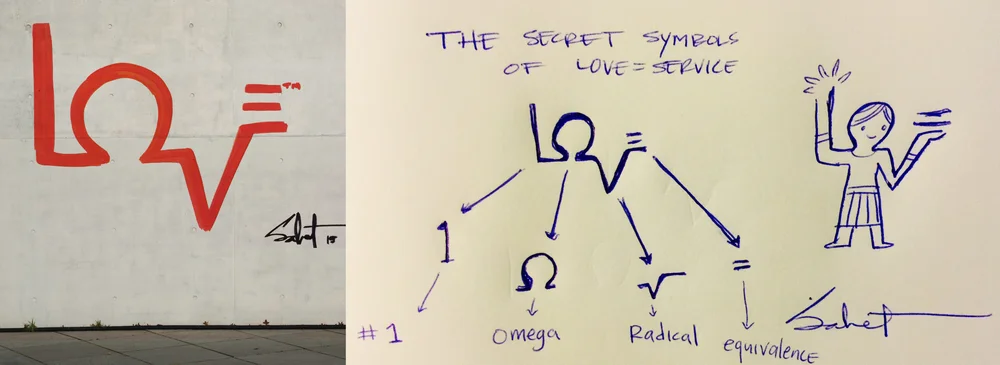 LΩV=™
Sahet 15
THE SECRET SYMBOLS
OF LOVE=SERVICE
LΩV=
1 Ω √ =
#1 Omega Radical equivalence
Sahet